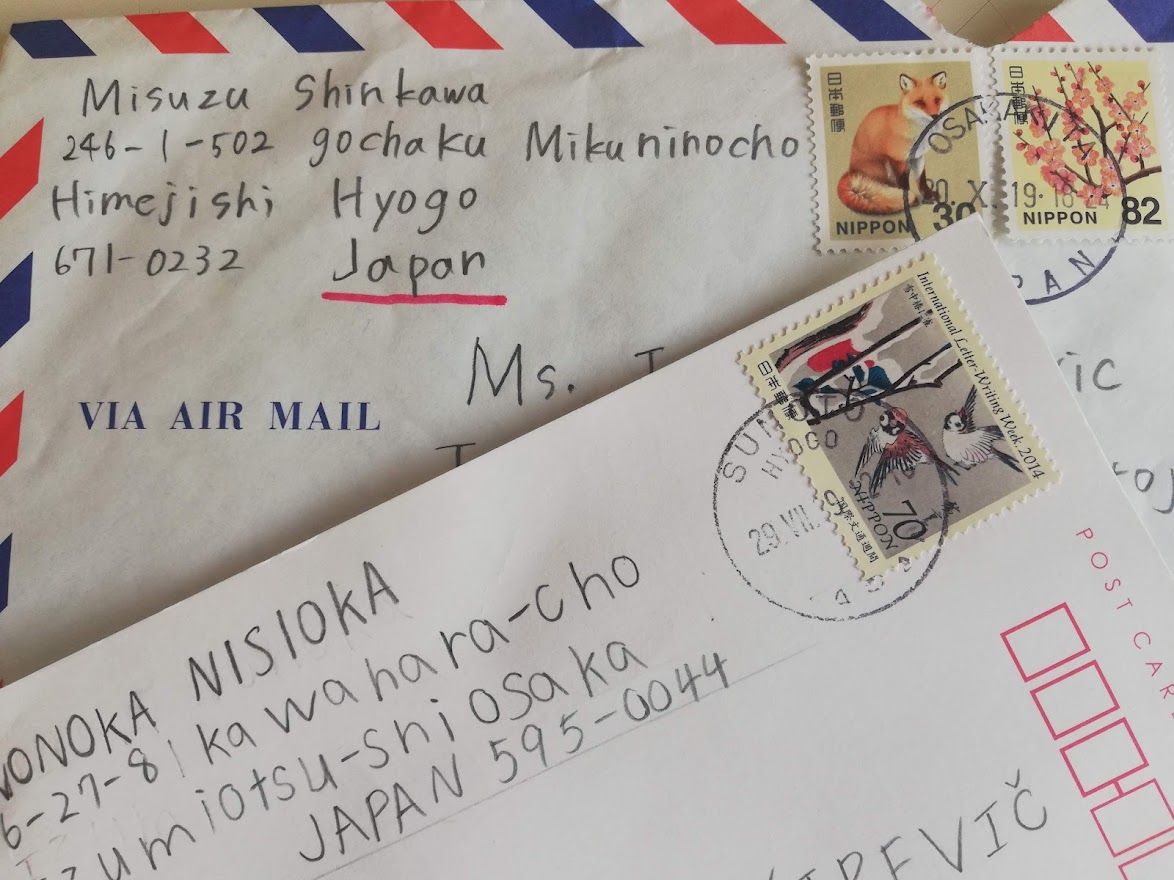 Misuzu Shinkawa
246-1-502 gochaku Mikuninocho
Himejishi Hyogo
671-0232 Japan
VIA AIR MAIL
Ms.
日本郵便
30
NIPPON
日本郵便
NIPPON 82
OSAKA
X. 19. 18-24
JAPAN
International Letter-Writing Week, 2014
日本郵便
NIPPON
70
国際文通週間
SUMOTO
HYOGO
29. VII.
NISIOKA
6-27-8 kawahara-cho
Izumiotsu-shi OSAKA
JAPAN 595-0044
POST CAR